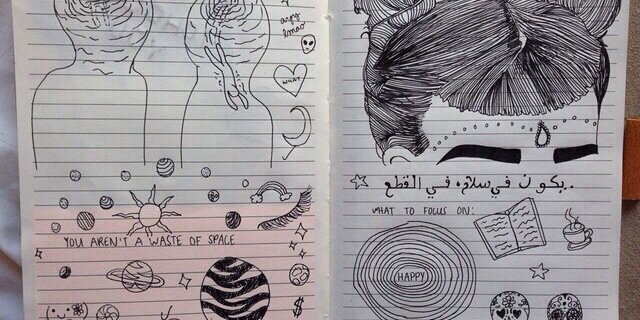 ayy
lmao
WHAT
YOU AREN'T A WASTE OF SPACE
$
..يكون في سلام، في القطع
WHAT TO FOCUS ON:
HAPPY